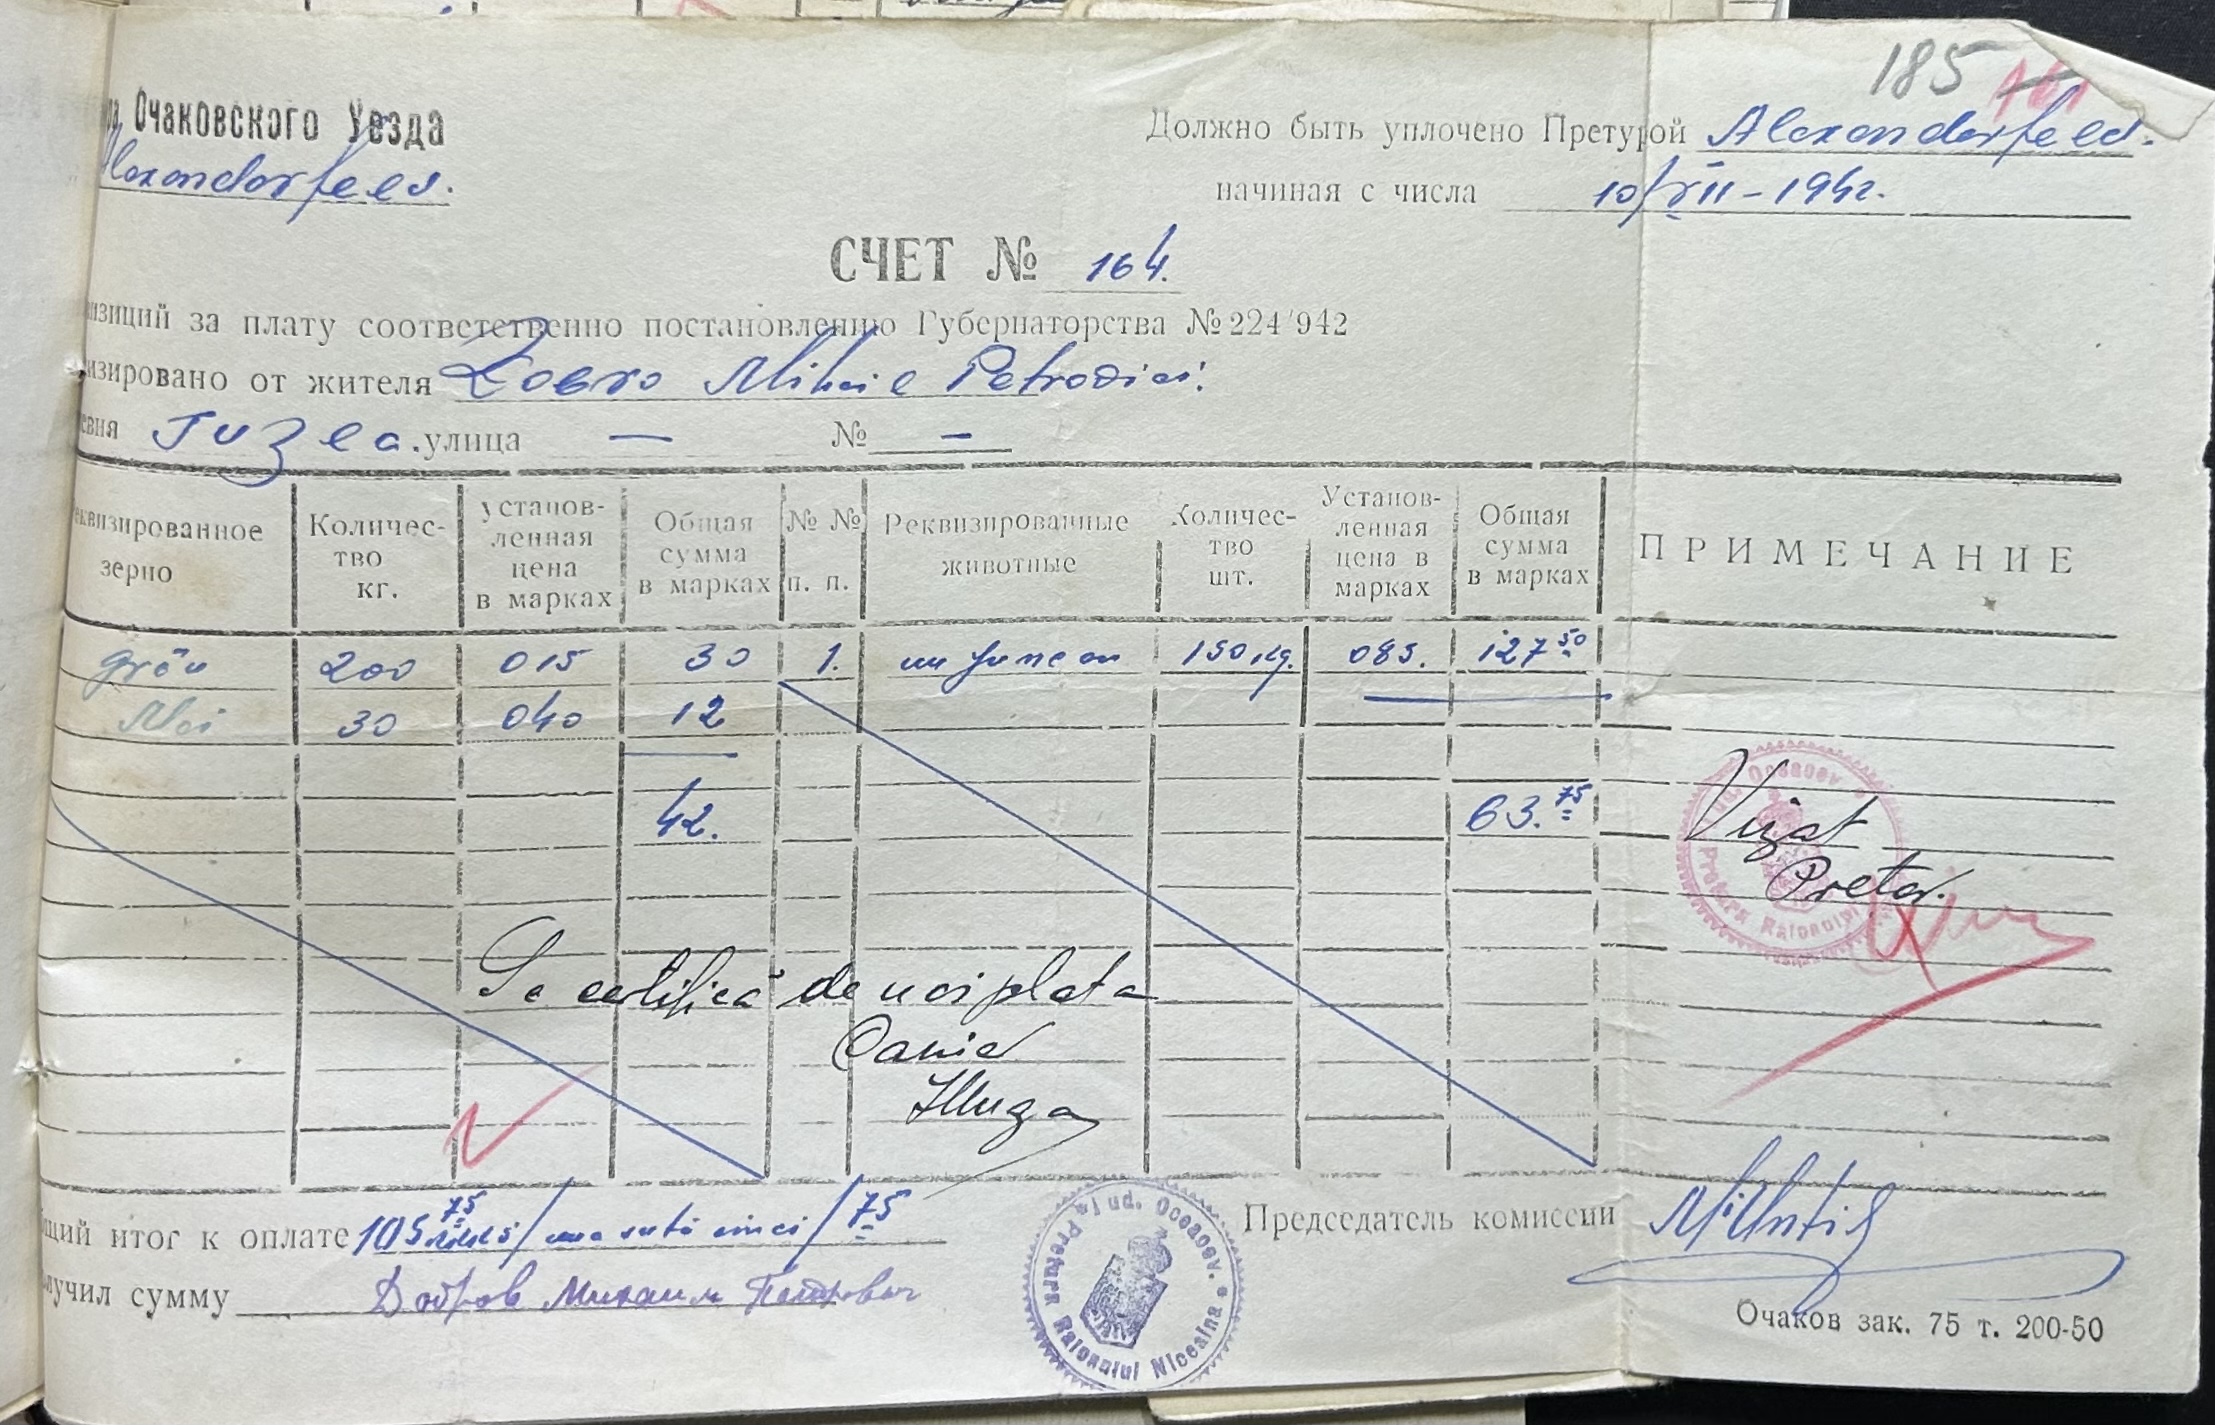 185
да Очаковского Уезда
Alexandorfeld.
Должно быть уплочено Претурой Alexandorfeld.
начиная с числа 10/XII-1942.
СЧЕТ № 164.
изиций за плату соответственно постановлению Губернаторства № 224/942
изировано от жителя Dobro Mihail Petrovici.
евня Tuzla. улица — № —
еквизированное зерно
Количество кг.
установленная цена в марках
Общая сумма в марках
№ № п. п.
Реквизированные животные
Количество шт.
Установленная цена в марках
Общая сумма в марках
ПРИМЕЧАНИЕ
grâu 200 015 30 1. un junean 150 kg. 085. 127 50
Mei 30 040 12
42. 63. 75
Vizat
Pretor.
Se certifică de noi plata
бщий итог к оплате 105 75 / una sută cinci / 75
лучил сумму Добров Михаил Петрович
Председатель комиссии
Jud. Oceacov. Pretura Raionului Niceaina
Jud. Oceacov Pretura Raionului
Очаков зак. 75 т. 200-50